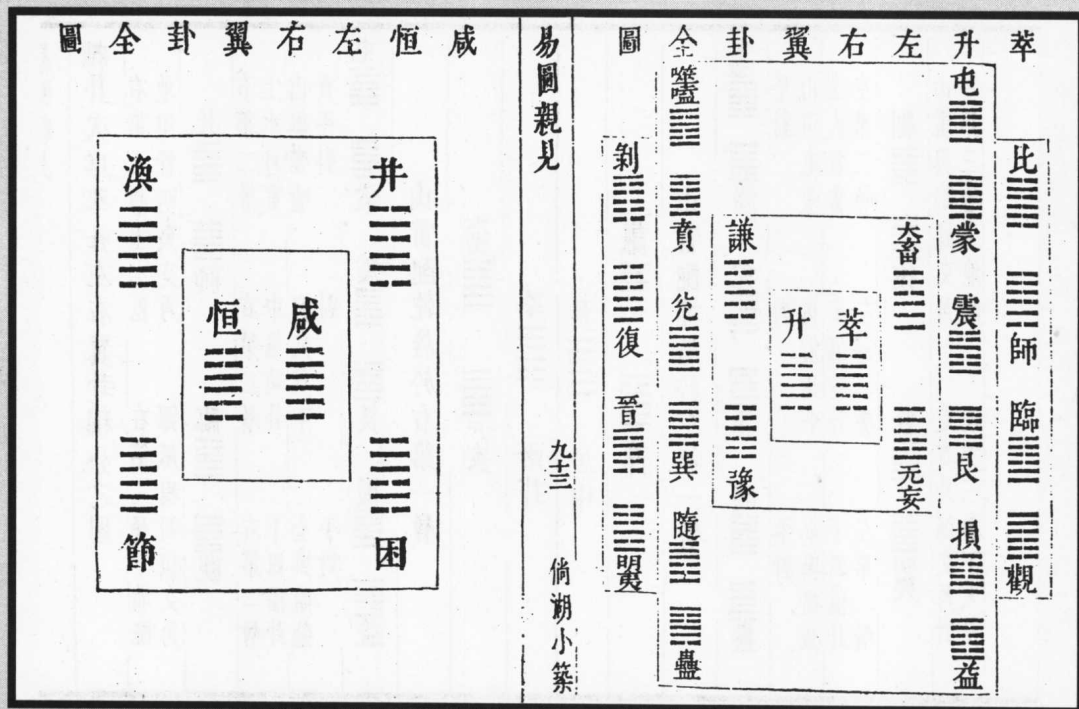 萃升左右翼卦全圖
比
師
臨
觀
屯
蒙
震
艮
損
益
大畜
无妄
萃
升
謙
豫
噬嗑
賁
兊
巽
隨
蠱
剝
復
晉
明夷
易圖親見
九十三
倘湖小築
咸恒左右翼卦全圖
井
困
咸
恒
渙
節